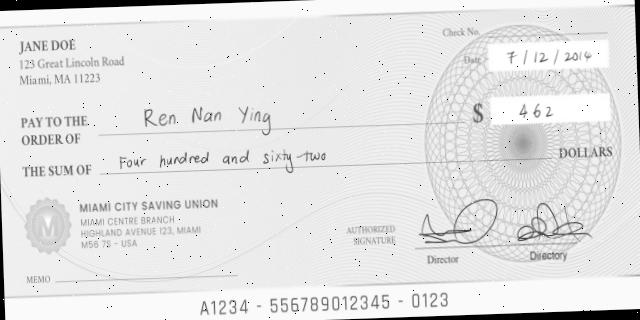 JANE DOE
Check No.
123 Great Lincoln Road
Miami, MA 11223
Date 7/12/2014
PAY TO THE
ORDER OF Ren Nan Ying $ 462
THE SUM OF Four hundred and sixty-two DOLLARS
MIAMI CITY SAVING UNION
MIAMI CENTRE BRANCH
HIGHLAND AVENUE 123, MIAMI
M56 7S - USA
AUTHORIZED
SIGNATURE
Director Directory
MEMO
A1234 - 556789012345 - 0123